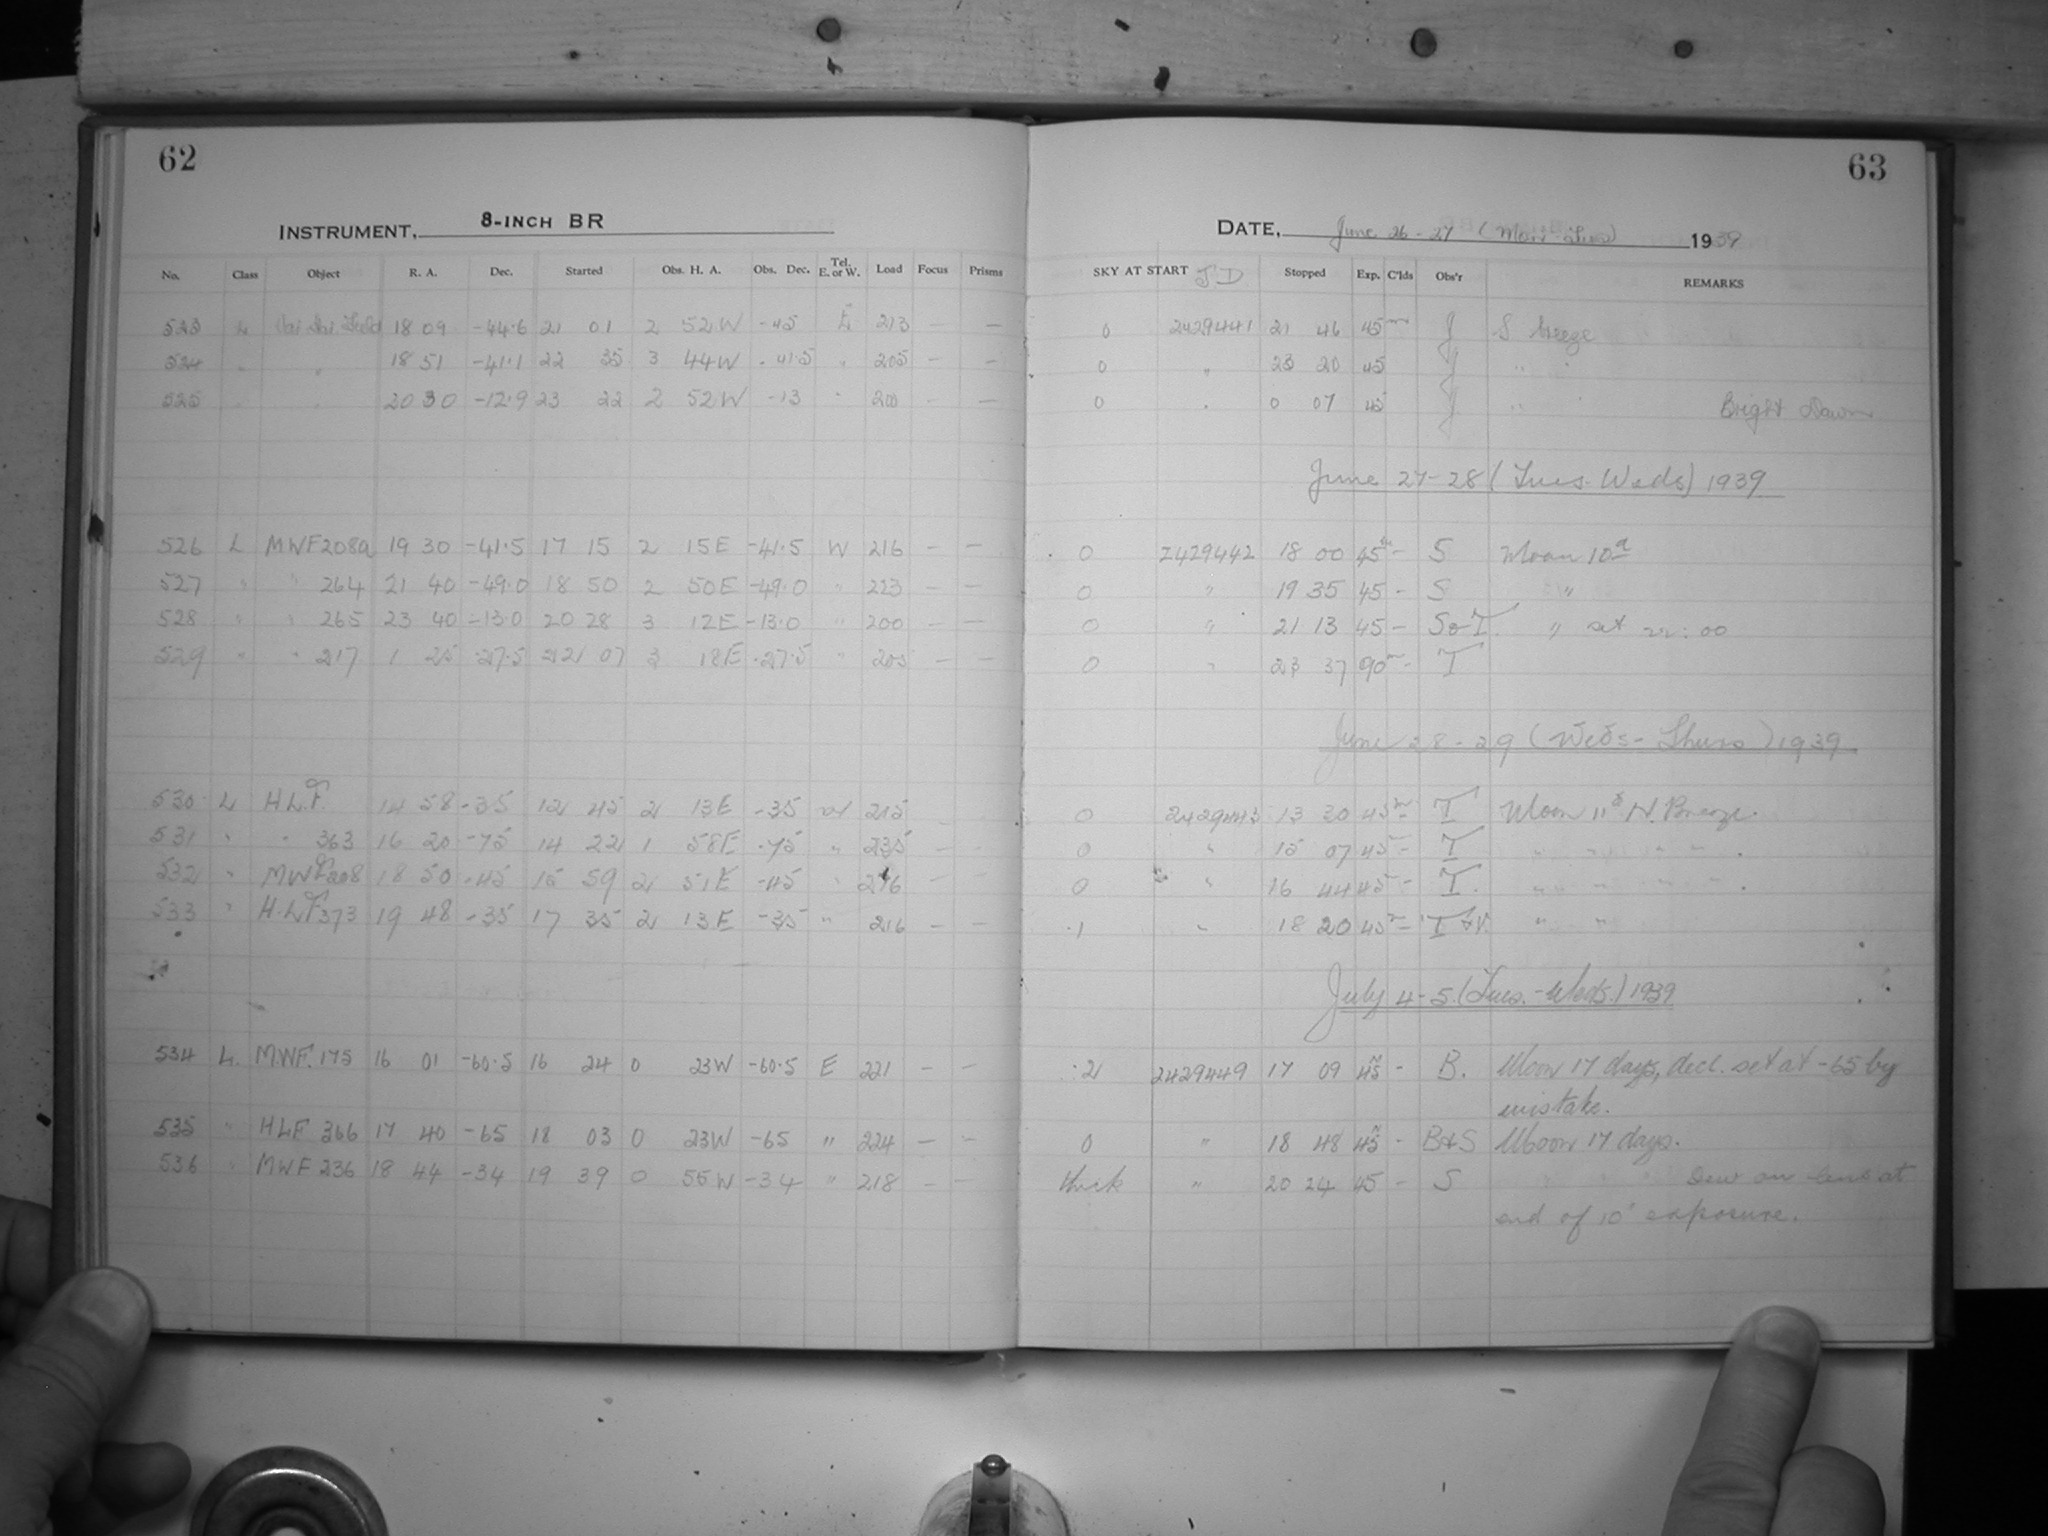 62
INSTRUMENT, 8-INCH BR
No. Class Object R. A. Dec. Started Obs. H. A. Obs. Dec. Tel. E. or W. Load Focus Prisms
523 L 18 09 -44.6 21 01 2 52W -45 E 213 — —
524 " " 18 51 -41.1 22 35 3 44W -41.5 " 205 — —
525 " " 20 30 -12.9 23 22 2 52W -13 " 200 — —
526 L MWF208a 19 30 -41.5 17 15 2 15E -41.5 W 216 — —
527 " " 264 21 40 -49.0 18 50 2 50E -49.0 " 223 — —
528 " " 265 23 40 -13.0 20 28 3 12E -13.0 " 200 — —
529 " " 217 1 25 -27.5 22 07 3 18E -27.5 " 205 — —
530 L HLF. 14 58 -35 12 45 2 13E -35 W 215
531 " " 363 16 20 -75 14 22 1 58E -75 " 235 — —
532 " MWF208 18 50 -45 15 59 2 51E -45 " 216 — —
533 " H.LF373 19 48 -35 17 35 2 13E -35 " 216 — —
534 L. MWF. 175 16 01 -60.5 16 24 0 23W -60.5 E 221 — —
535 " HLF 366 17 40 -65 18 03 0 23W -65 " 224 — —
536 " MWF 236 18 44 -34 19 39 0 55W -34 " 218 — —
63
DATE, June 26-27 (Mon-Tues) 1939
SKY AT START JD Stopped Exp. C'lds Obs'r REMARKS
0 2429441 21 46 45m J S breeze
0 " 23 20 45 J " "
0 " 0 07 45 J " Bright Dawn
June 27-28 (Tues-Weds) 1939
0 2429442 18 00 45m - S Moon 10d
0 " 19 35 45 - S "
0 " 21 13 45 - S&T. " set 22:00
0 " 23 37 90m - T
June 28-29 (Weds-Thurs) 1939
0 2429443 13 30 45m - T Moon 11d N. Breeze.
0 " 15 07 45 - T " " " " .
0 " 16 44 45 - T. " " " " .
.1 " 18 20 45m - T " "
July 4-5 (Tues.-Weds.) 1939
.2 2429449 17 09 45m - B. Moon 17 days, decl. set at -65 by
mistake.
0 " 18 48 45m - B&S Moon 17 days.
thick " 20 24 45 - S " " Dew on lens at
end of 10' exposure.